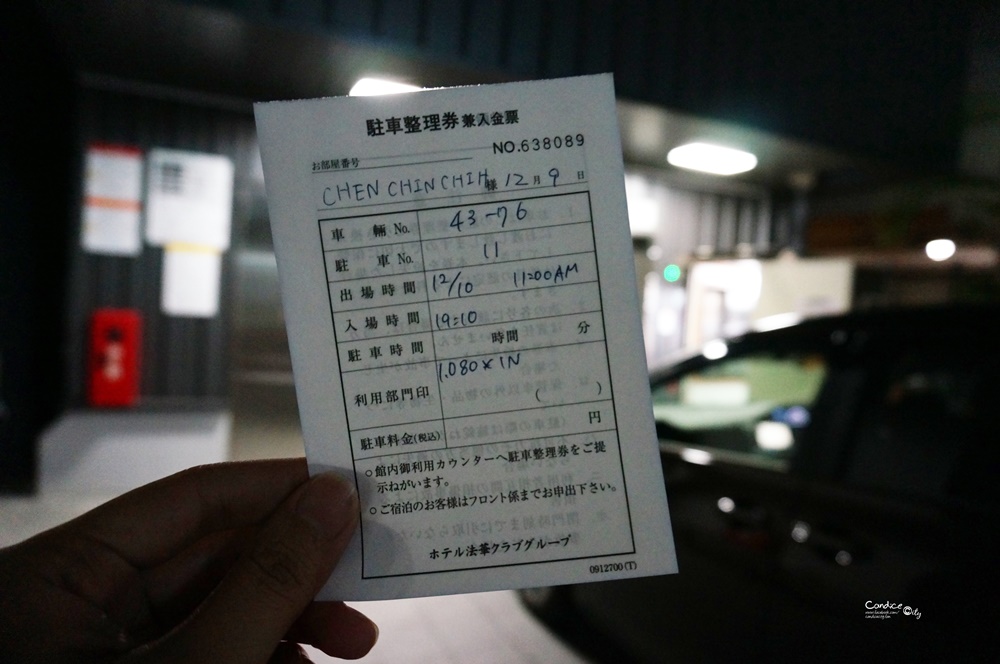 駐車整理券兼入金票
NO.638089
お部屋番号
CHEN CHIN CHIH 様 12月9日
車輛No. 43-76
駐車No. 11
出場時間 12/10 11:00AM
入場時間 19:10
駐車時間 時間 分
利用部門印 1,080×1N
( )
駐車料金(税込) 円
○館内御利用カウンターへ駐車整理券をご提
示ねがいます。
○ご宿泊のお客様はフロント係までお申出下さい。
ホテル法華クラブグループ
0912700(T)
Candice City